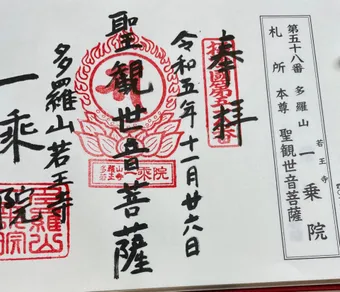 第五十八番 多羅山 若王寺 一乗院
札所本尊 聖観世音菩薩
奉拝
令和五年十一月廿六日
聖観世音菩薩
多羅山
若王寺
一乗院
多羅山若王寺
一乗院